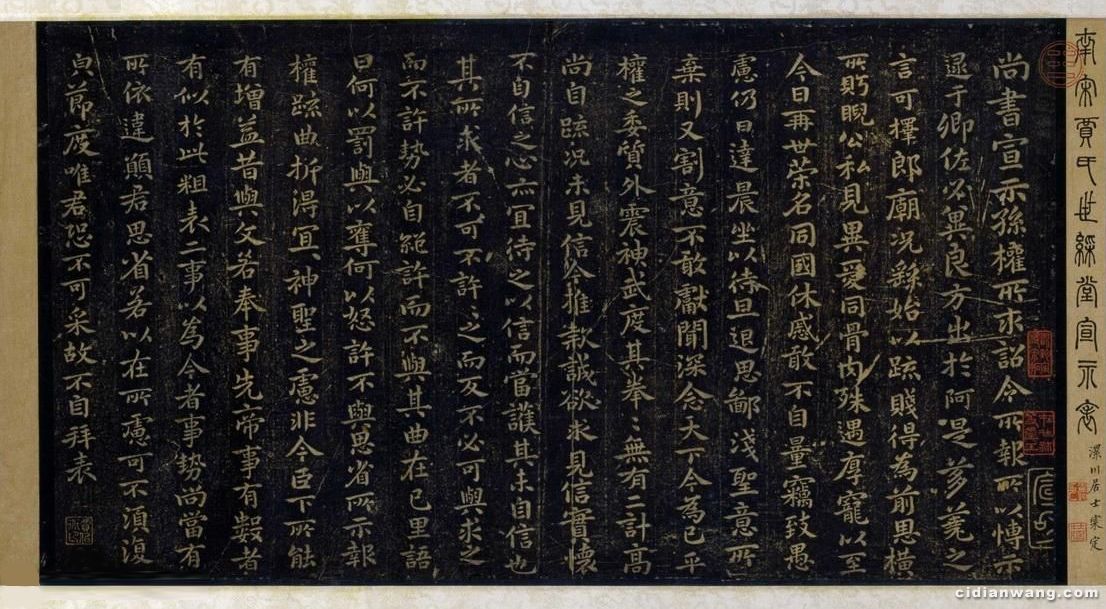 南宋賈氏世綵堂宣示表
漯川居士寀定
尚書宣示孫權所求詔令所報所以博示
逮于卿佐必冀良方出於阿是芻蕘之
言可擇郎廟況繇始以疏賤得為前恩橫
所眄睨公私見異愛同骨肉殊遇厚寵以至
今日再世榮名同國休慼敢不自量竊致愚
慮仍日達晨坐以待旦退思鄙淺聖意所
棄則又割意不敢獻聞深念天下今為已平
權之委質外震神武度其拳〻無有二計高
尚自疏況未見信今推款誠欲求見信實懷
不自信之心亦宜待之以信而當護其未自信也
其所求者不可不許〻之而反不必可與求之
而不許勢必自絕許而不與其曲在己里語
曰何以罰與以奪何以怒許不與思省所示報
權疏曲折得宜〻神聖之慮非今臣下所能
有增益昔與文若奉事先帝事有數者
有似於此粗表二事以為今者事勢尚當有
所依違願君思省若以在所慮可不須復
貞節度唯君恐不可采故不自拜表
cidianwang.com